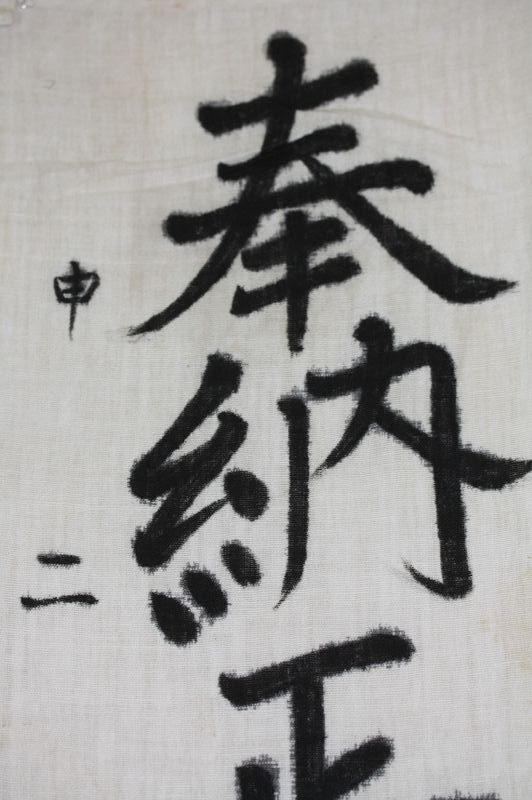 奉納正
申二